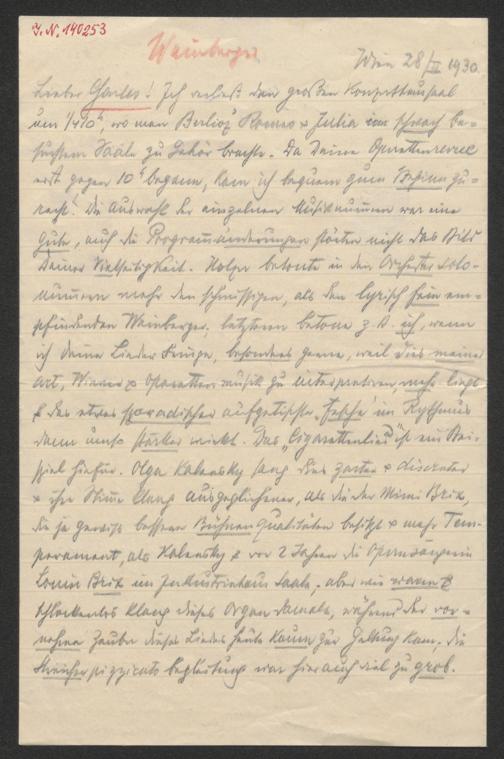 I. N. 140253
Weinberger
Wien 28/II 1930.
Lieber Charles! Ich verließ den großen Konzerthaussaal
um 1/4 10h, wo man Berlioz' Romeo & Julia im schwach be-
suchtem Saale zu Gehör brachte. Da Deine Operettenrevue
erst gegen 10h begann, kam ich bequem zum Beginn zu-
recht! Die Auswahl der einzelnen Musiknummern war eine
gute, auch die Programmänderungen störten nicht das Bild
Deiner Vielseitigkeit. Holzer betonte in den Orchester solo-
nummern mehr den schmissigen, als den lyrisch fein em-
pfindenden Weinberger, letzteren betone z. B. ich, wenn
ich Deine Lieder singe, besonders gerne, weil dies meine
Art, Wiener & Operettenmusik zu interpretieren, mehr liegt
& das etwas sporadischer aufgetischte "Fesche" im Rythmus
dann umso stärker wirkt. Das "Cigarettenlied" ist ein Bei-
spiel hiefür. Olga Kalensky sang dies zarter & discreter
& ihre Stimme klang ausgeglichener, als die der Mimi Brix,
die ja gewiss bessere Bühnenqualitäten besitzt & mehr Tem-
perament, als Kalensky & vor 2 Jahren die Opernsängerin
Louise Brix im Industriehaus Saale, aber wie warm &
schlackenlos klang dieses Organ damals, während der vor-
nehme Zauber dieses Liedes heute kaum zur Geltung kam. Die
Streicher pizzicato begleitung war hier auch viel zu grob.